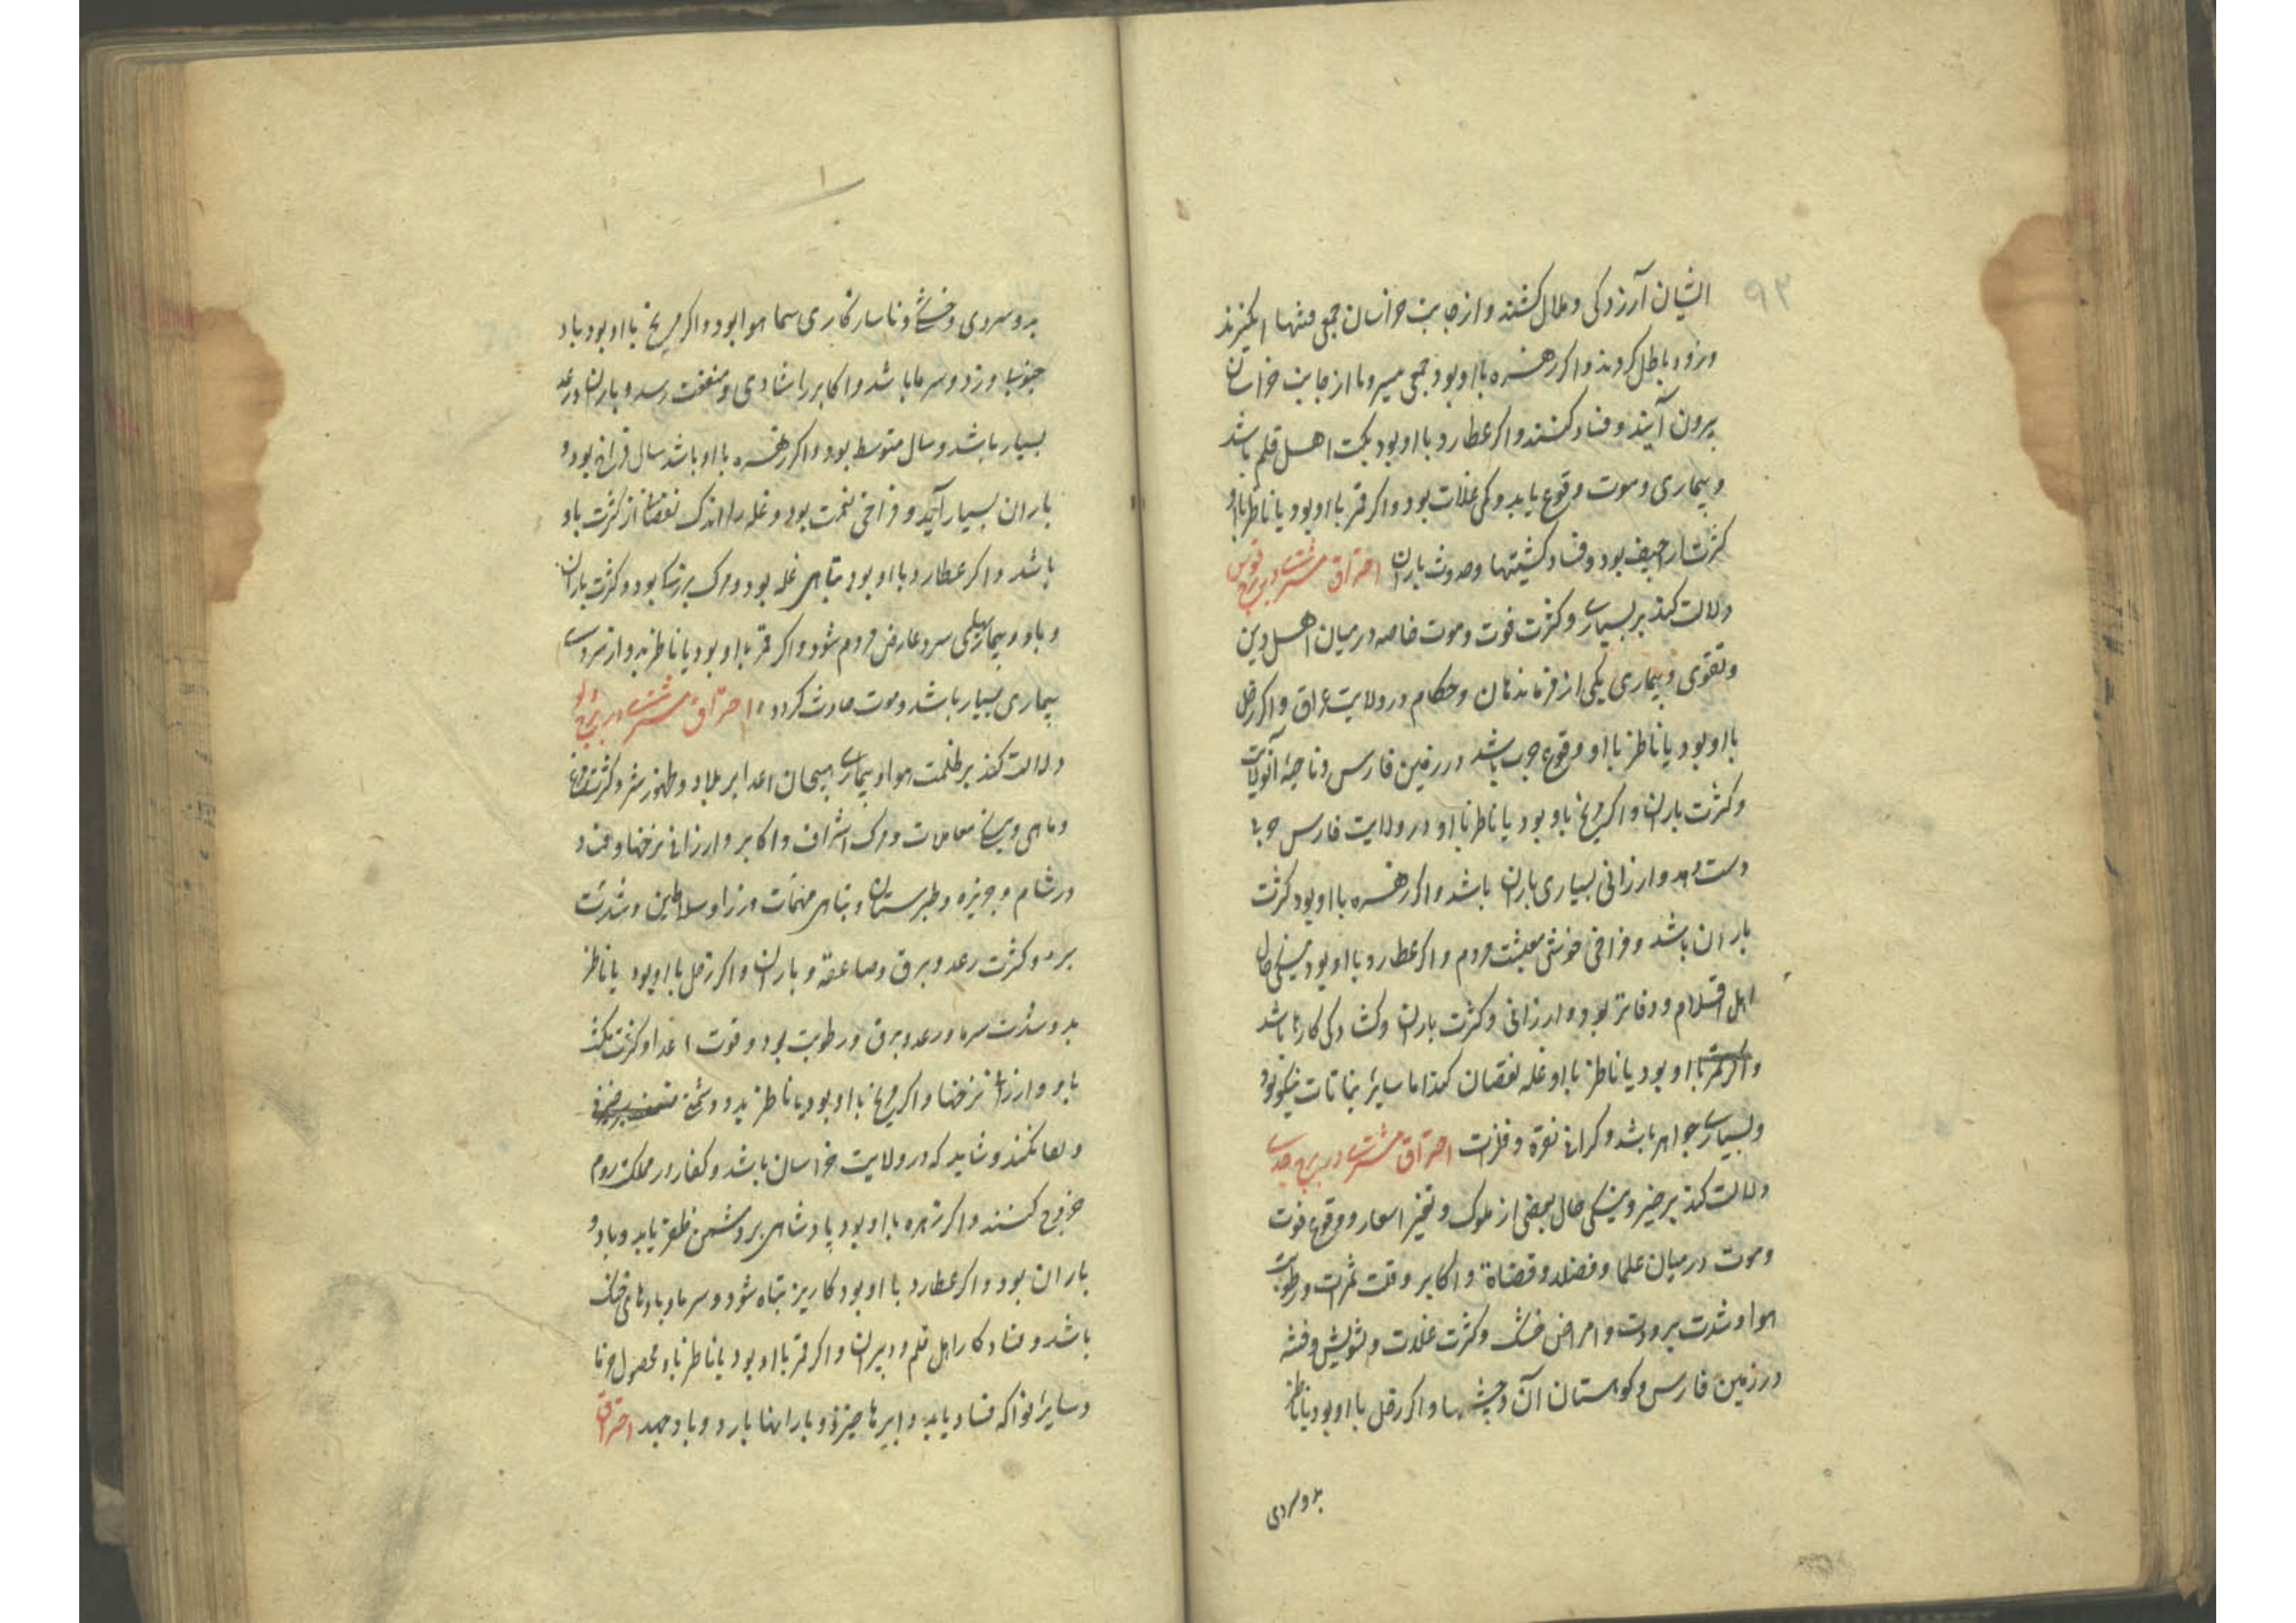 ۹۲
ایشان آرزدکی و ملال کشند و از جانب خراسان جمعی فتنها انکیزند
و زود باطل کردند و اکر زهره با او بود جمعی از جانب خراسان
بیرون آیند و فساد کنند و اکر عطارد با او بود نکبت اهل قلم باشد
و بیماری و موت وقوع یابد و کمی غلات بود و اکر قمر با او بود یا ناظر با او
کثرت اراجیف بود و فساد کشتیها و حدوث باران احتراق مشتری در برج قوس
دلالت کند بر بسیاری و کثرت فوت و موت خاصه در میان اهل دین
و تقوی و بیماری یکی از فرماندهان و حکام در ولایت عراق و اکر زحل
با او بود یا ناظر با او وقوع حرب باشد در زمین فارس و ناحیهٔ آنولایت
و کثرت باران و اکر مریخ باو بود یا ناظر با او در ولایت فارس حربا
دست دهد و ارزانی بسیاری باران باشد و اکر زهره با او بود کثرت
باران باشد و فراخی خوشی معیشت مردم و اکر عطارد با او بود نیکی حال
اهل اقلام و دفاتر بود و ارزانی و کثرت باران و کشادکی کارها باشد
و اکر قمر با او بود یا ناظر با او غله نقصان کند اما سایر نباتات نیکو بود
و بسیاری جواهر باشد و کرانی نقره و فلزات احتراق مشتری در برج جدی
دلالت کند بر خیر و نیکی حال بعضی از ملوک و تغیر اسعار و وقوع فوت
و موت در میان علما و فضلا و قضاة و اکابر و قلت ثمرات و رطوبت
هوا و شدت برودت و امراض خشک و کثرت غلات و تشویش و فتنه
در زمین فارس و کوهستان آن و حبشها و اکر زحل با او بود یا ناظر
بدو سردی
بدو سردی و خشکی و ناسازکاری سما هوا بود و اکر مریخ با او بود باد
جنوب وزد و سرما باشد و اکابر را شادی و منفعت رسد و باران و رعد
بسیار باشد و سال متوسط بود و اکر زهره با او باشد سال فراخ بود و
باران بسیار آید و فراخی نعمت بود و غله را اندک نقصان از کثرت باد
باشد و اکر عطارد با او بود تباهی غله بود و مرک بزرکان بود و کثرت باران
و باد و بیماریهای سرد عارض مردم شود و اکر قمر با او بود یا ناظر بدو از سردی
بیماری بسیار باشد و موت حادث کردد احتراق مشتری در برج دلو
دلالت کند بر ظلمت هوا و بیماری و هیجان اعدا بر بلاد و ظهور شر و کثرت مرغ
و ماهی و معاملات و مرک اشراف و اکابر و ارزانی نرخها و فساد
در شام و جزیره و طبرستان و تباهی مهمات وزرا و سلاطین و شدت
برد و کثرت رعد و برق و صاعقه و باران و اکر زحل با او بود یا ناظر
بدو شدت سرما و رعد و برق و رطوبت بود و قوت اعدا و کثرت
باد و ارزانی نرخها و اکر مریخ با او بود یا ناظر بدو دشمنی
و شاید که در ولایت خراسان باشد و کفار در مملکت روم
خروج کنند و اکر زهره با او بود پادشاهی بر دشمن ظفر یابد و باد و
باران بود و اکر عطارد با او بود کاریز تباه شود و سرما و بادهای خنک
باشد و فساد کار اهل قلم و دبیران و اکر قمر با او بود یا ناظر باو محصول خرما
و سایر فواکه فساد یابد و ابرها خیزد و بارانها بارد و باد جهد احتراق